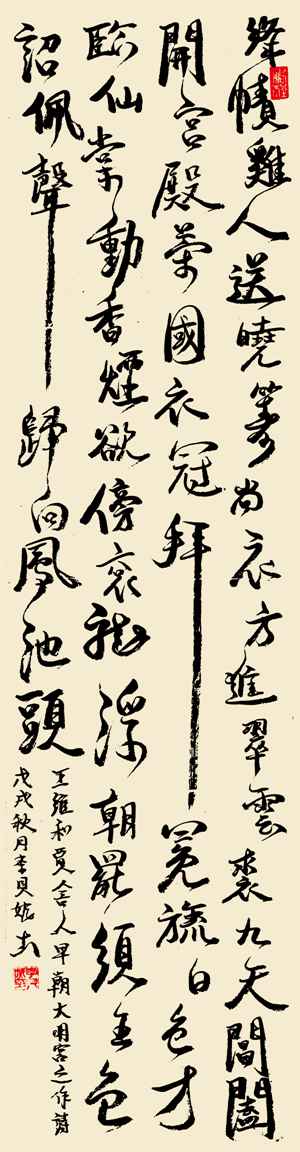 絳幘雞人送曉籌尚衣方進翠雲裘九天閶闔
開宮殿萬國衣冠拜冕旒日色才
臨仙掌動香煙欲傍袞龍浮朝罷須五色
詔佩聲歸向鳳池頭
王維和賈舍人早朝大明宮之作詩
戊戌秋月李貝書